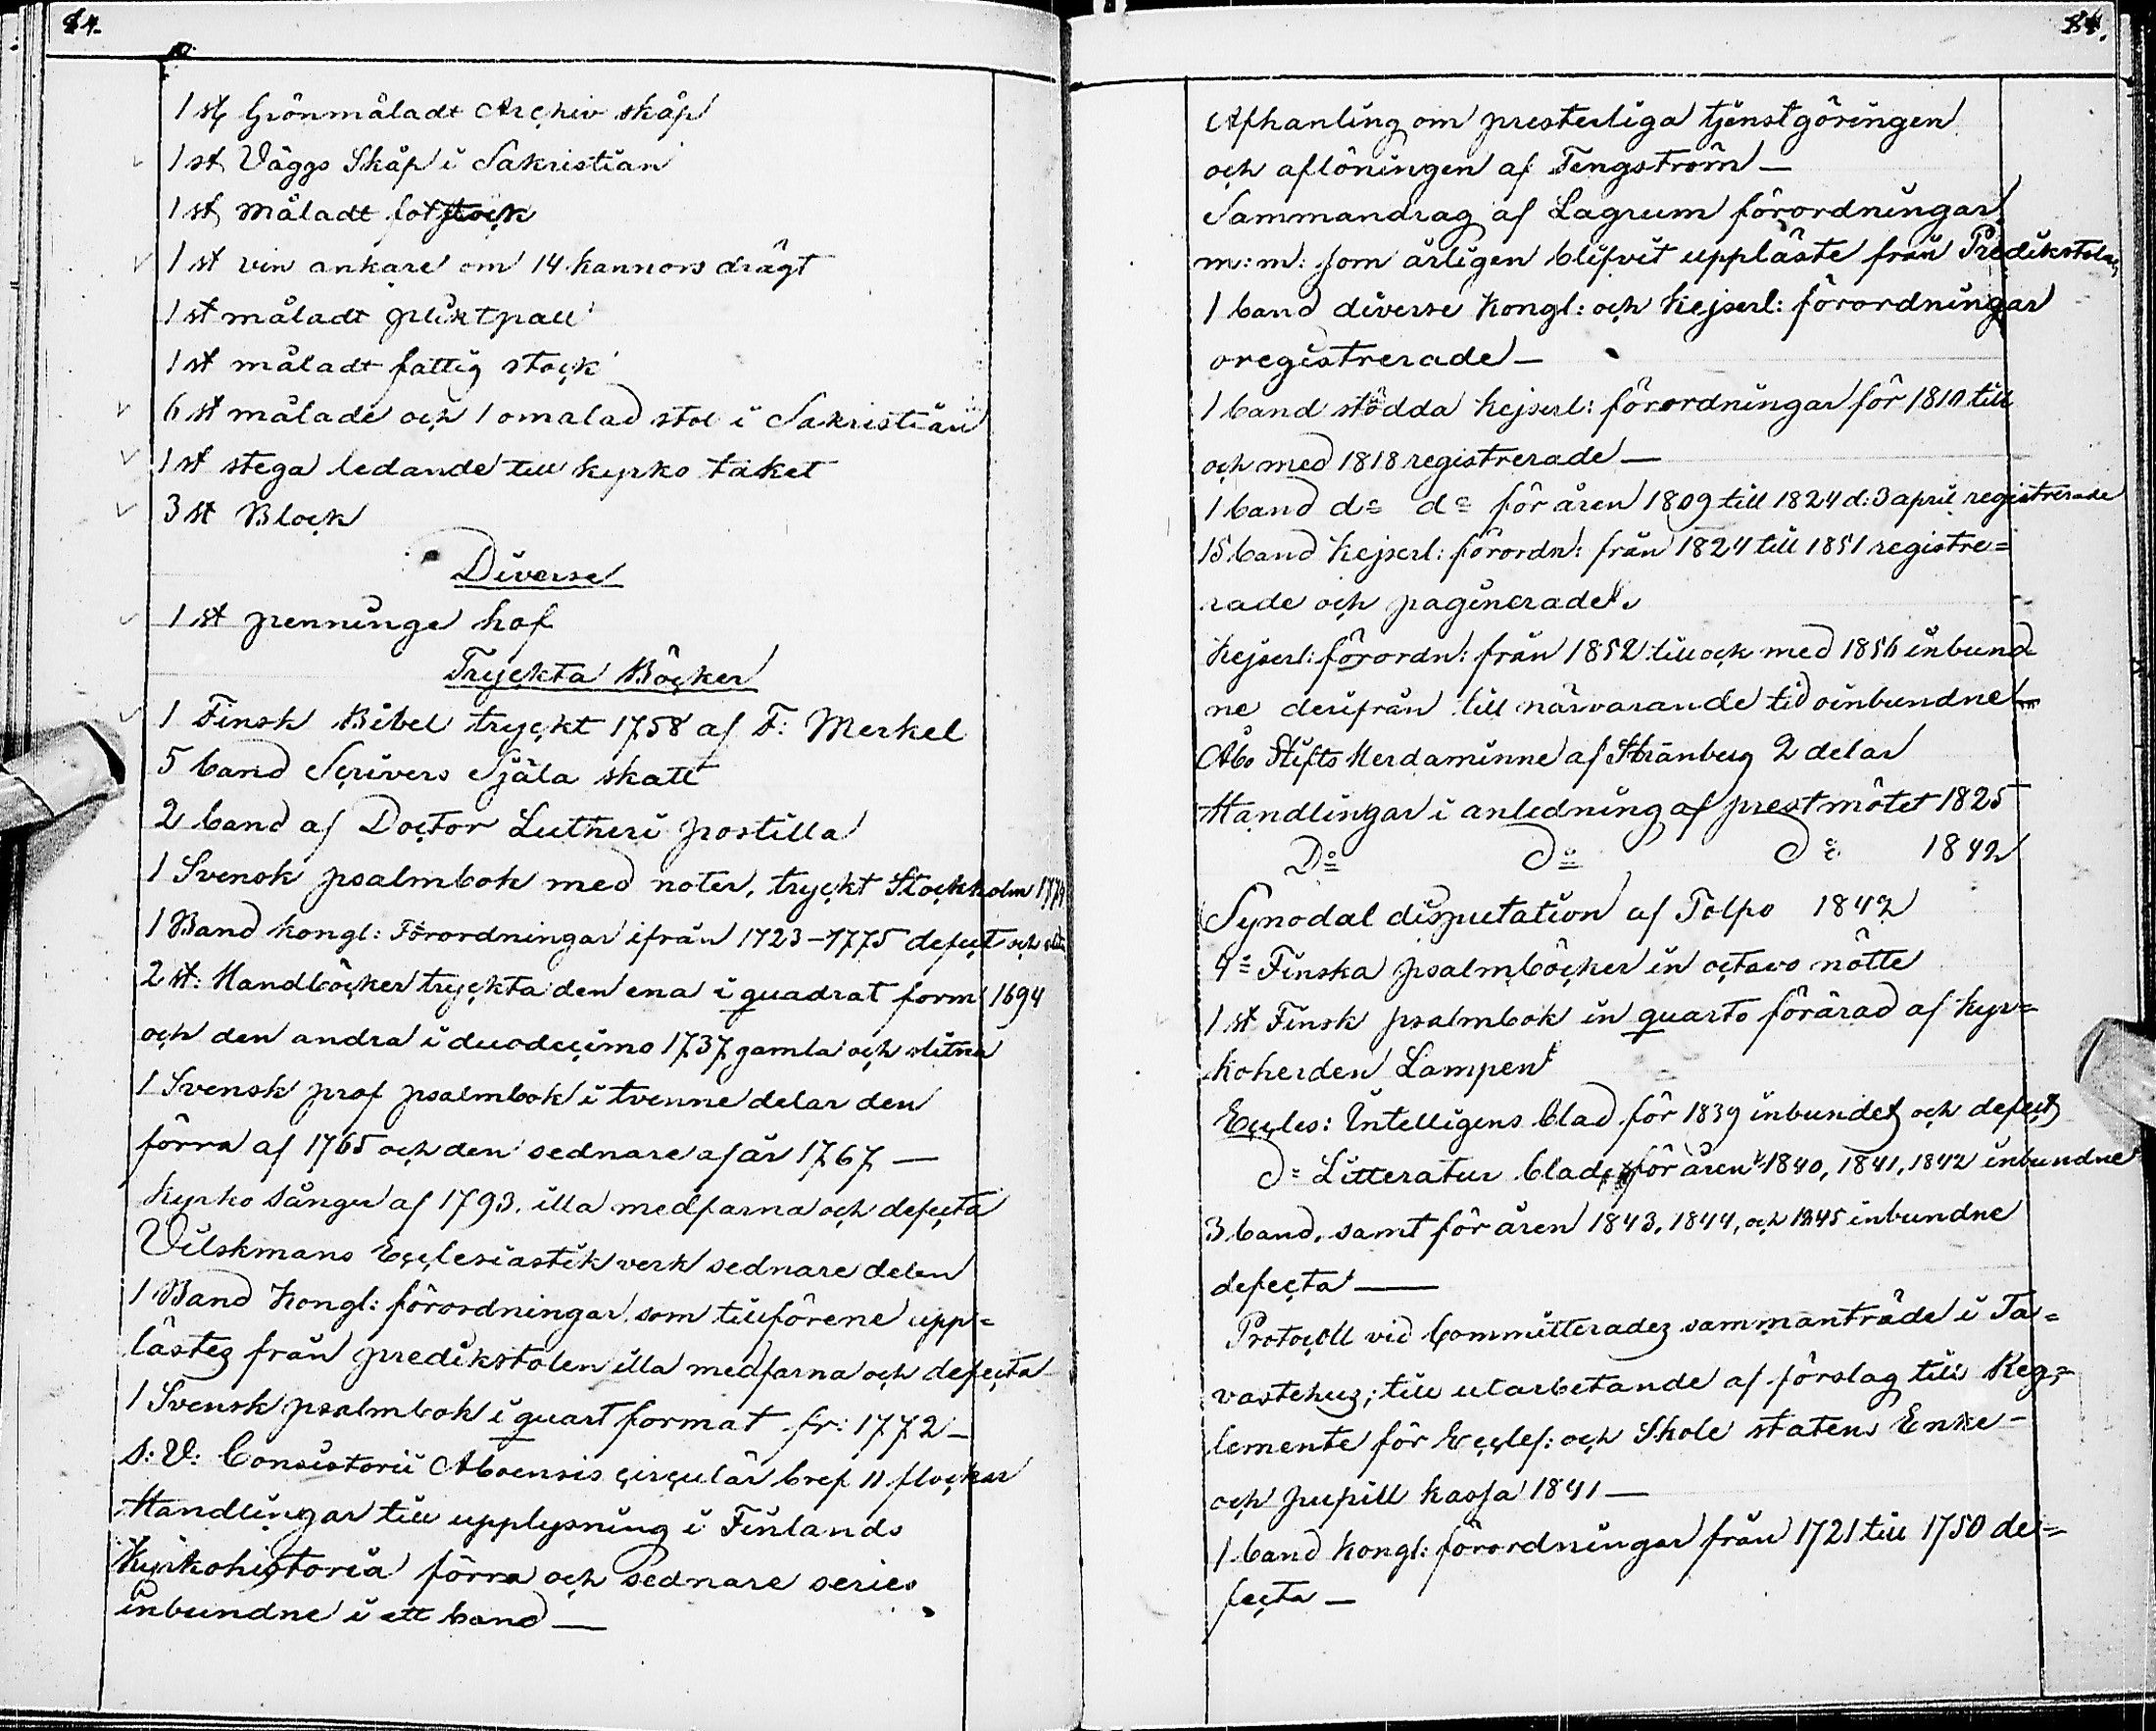 84.
1 st Grönmåladt Archiv skåp
1 st Väggs Skåp i Sakristian
1 st måladt fotstock
1 st vin ankare om 14 kannors drägt
1 st måladt pliktpall
1 st måladt fattig stock
6 st målade och 1 omalad stol i Sakristian
1 st stega ledande till kyrko taket
3 st Block
Diverse
1 st penninge hof
Tryckta Böcker
1 Finsk Bibel tryckt 1758 af F: Merkel
5 band Scrivers Själa skatt
2 band af Doctor Lutheri postilla
1 Svensk psalmbok med noter, tryckt Stockholm
1 Band Kongl: Förordningar ifrån 1723-1775 defect och
2 st: Handböcker tryckta den ena i quadrat form 1694
och den andra i duodecimo 1737 gamla och slitna
1 Svensk prof psalmbok i tvenne delar den
förra af 1765 och den sednare af år 1767 —
Kyrko sånger af 1793. illa medfarna och defecta
Vilskmans Ecclesiastik verk sednare delen
1 Band Kongl: förordningar som tillförene upp=
lästes från predikstolen illa medfarna och defecta
1 Svensk psalmbok i quart format fr: 1772 —
S: V: Consistorii Aboensis circulär bref 11 flockar
Handlingar till upplysning i Finlands
Kyrkohistoria förra och sednare series
inbundne i ett band —
84.
Afhanling om presterliga tjenstgöringen
och aflöningen af Tengström —
Sammandrag af Lagrum förordningar
m: m: som årligen blifvit uppläste från Predikstolen
1 band diverse Kongl: och Kejserl: förordningar
oregistrerade —
1 band stödda Kejserl: förordningar för 1810 till
och med 1818 registrerade —
1 band do do för åren 1809 till 1824 d: 3 april registrerade
15 band Kejserl: förordn: från 1824 till 1851 registre=
rade och paginerade.
Kejserl: förordn: från 1852 till och med 1856 inbund
ne derifrån till närvarande tid oinbundne —
Åbo Stifts Herdaminne af Stranberg 2 delar
Handlingar i anledning af prestmötet 1825
Do do do 1842
Synodal disputation af Tolpo 1842
4 Finska psalmböcker in octavo nötte
1 st Finsk psalmbok in quarto förärad af Kyr=
koherden Lampen
Eccles: Intelligens blad för 1839 inbundet och defect
do Litteratur blad för åren 1840, 1841, 1842 inbundne
3 band, samt för åren 1843, 1844, och 1845 inbundne
defecta —
Protocoll vid Committerades sammanträde i Ta=
vastehus; till utarbetande af förslag till Reg=
lemente för Eccles: och Skole statens Enke-
och pupill kassa 1841 —
1 band Kongl: förordningar från 1721 till 1750 de=
fecta —